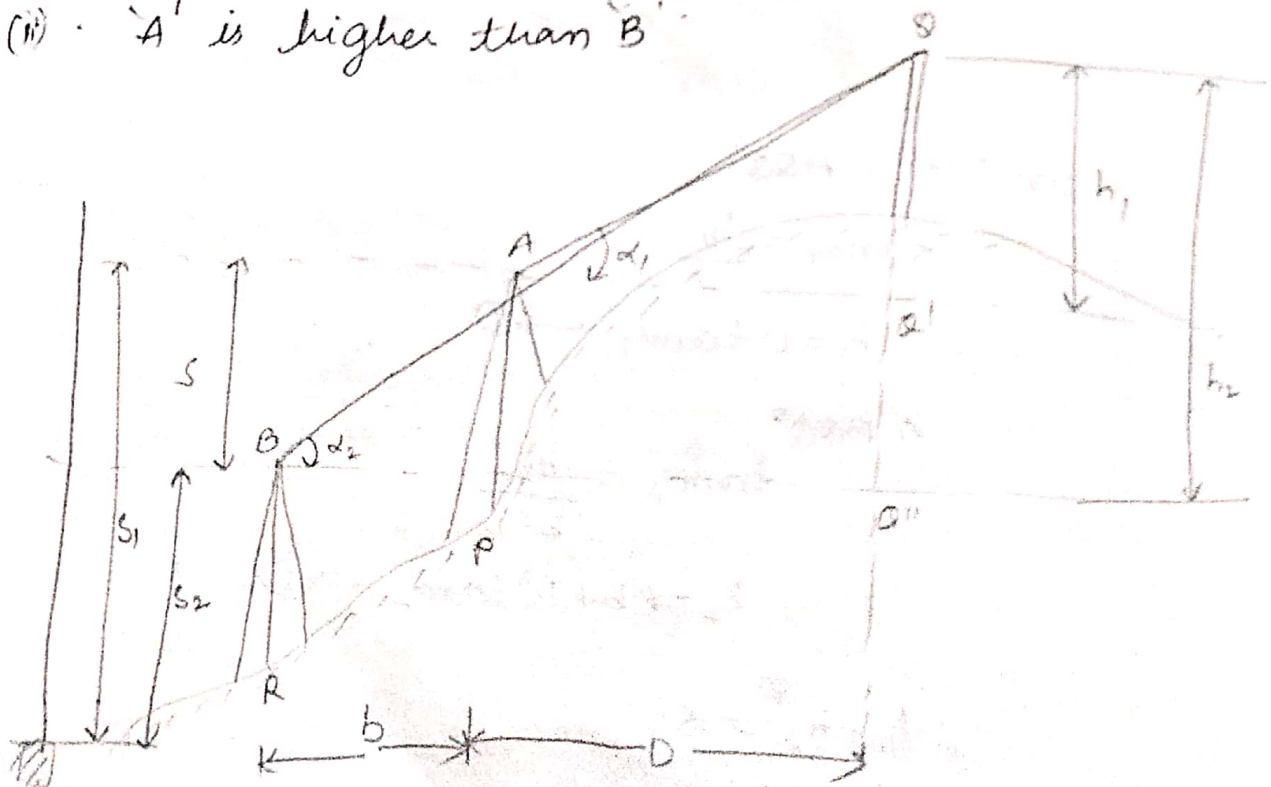 (ii) . 'A' is higher than 'B'.
Q
h₁
A
α₁
Q'
S
h₂
B
α₂
Q''
S₁
P
S₂
R
b
D